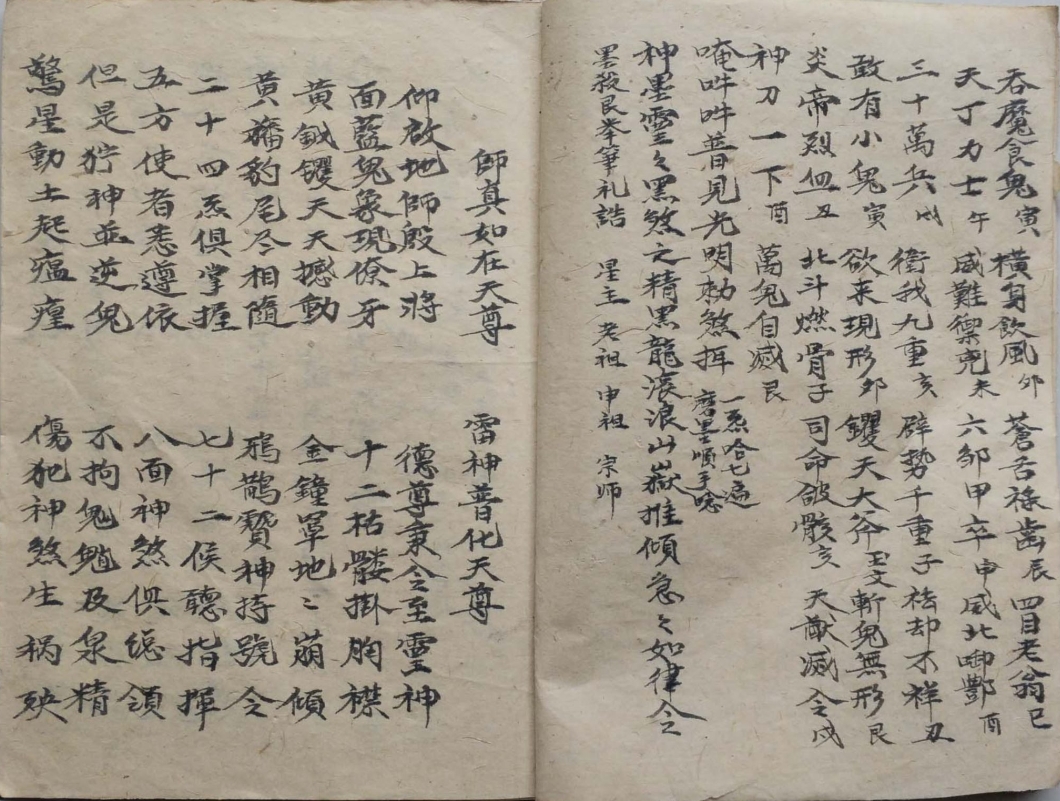 吞魔食鬼寅 橫身飲風卯 蒼舌祿齒辰 四目老翁巳
天丁力士午 威難禦兇未 六邹甲卒申 威北啣酆酉
三十萬兵戌 衛我九重亥 辟勢千重子 祛却不祥丑
敢有小鬼寅 欲来現形卯 钁天大斧 斬鬼無形艮
炎帝烈血丑 北斗燃骨子 司命骸亥 天猷滅令戌
神刀一下酉 萬鬼自滅艮
唵吽吽普見光明勅煞 一炁哈七遍
磨墨順手唸
神墨靈々黑煞之精黑龍滚浪山嶽推傾急々如律令
墨殺艮奉筆礼誥 星主 老祖 申祖 宗师
師真如在天尊 雷神普化天尊
仰啟地師殷上將 德尊秉令至靈神
面藍鬼象現獠牙 十二枯髅掛胸襟
黃鉞钁天天撼動 金鐘罩地地崩傾
黄旛豹尾尽相隨 鴉鹊贊神持號令
二十四炁俱掌握 七十二候聽指揮
五方使者悉遵依 八面神煞俱總領
但是狞神並逆鬼 不拘鬼魈及泉精
驚星動土起瘟瘴 傷犯神煞生祸殃